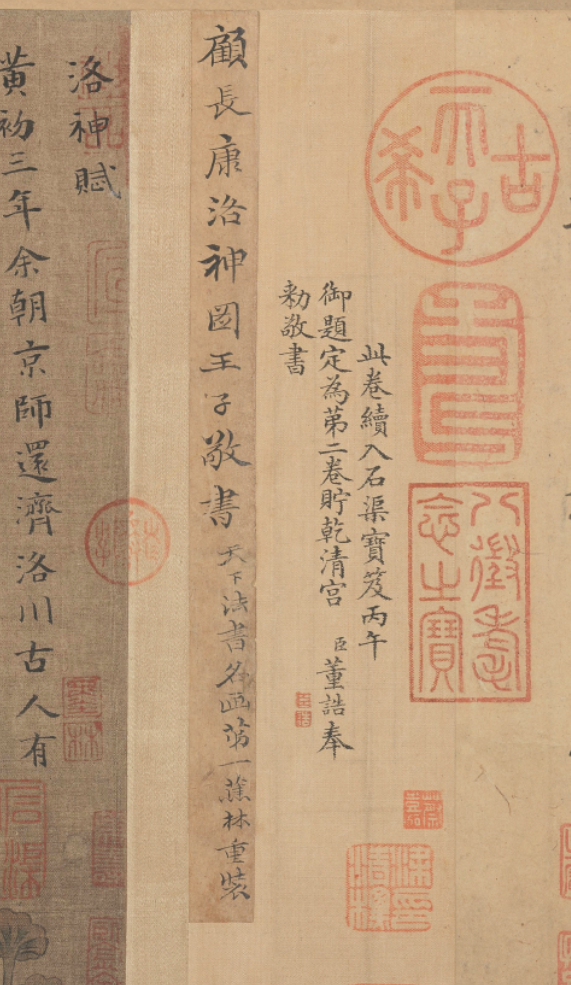 古希天子
壽
八徵耄念之寶
蔡嘉
此卷續入石渠寶笈丙午
御題定為第二卷貯乾清宮 臣董誥奉
勅敬書
顧長康洛神图王子敬書 天下法書名画第一蕉林重裝
洛神賦
黃初三年余朝京師還濟洛川古人有